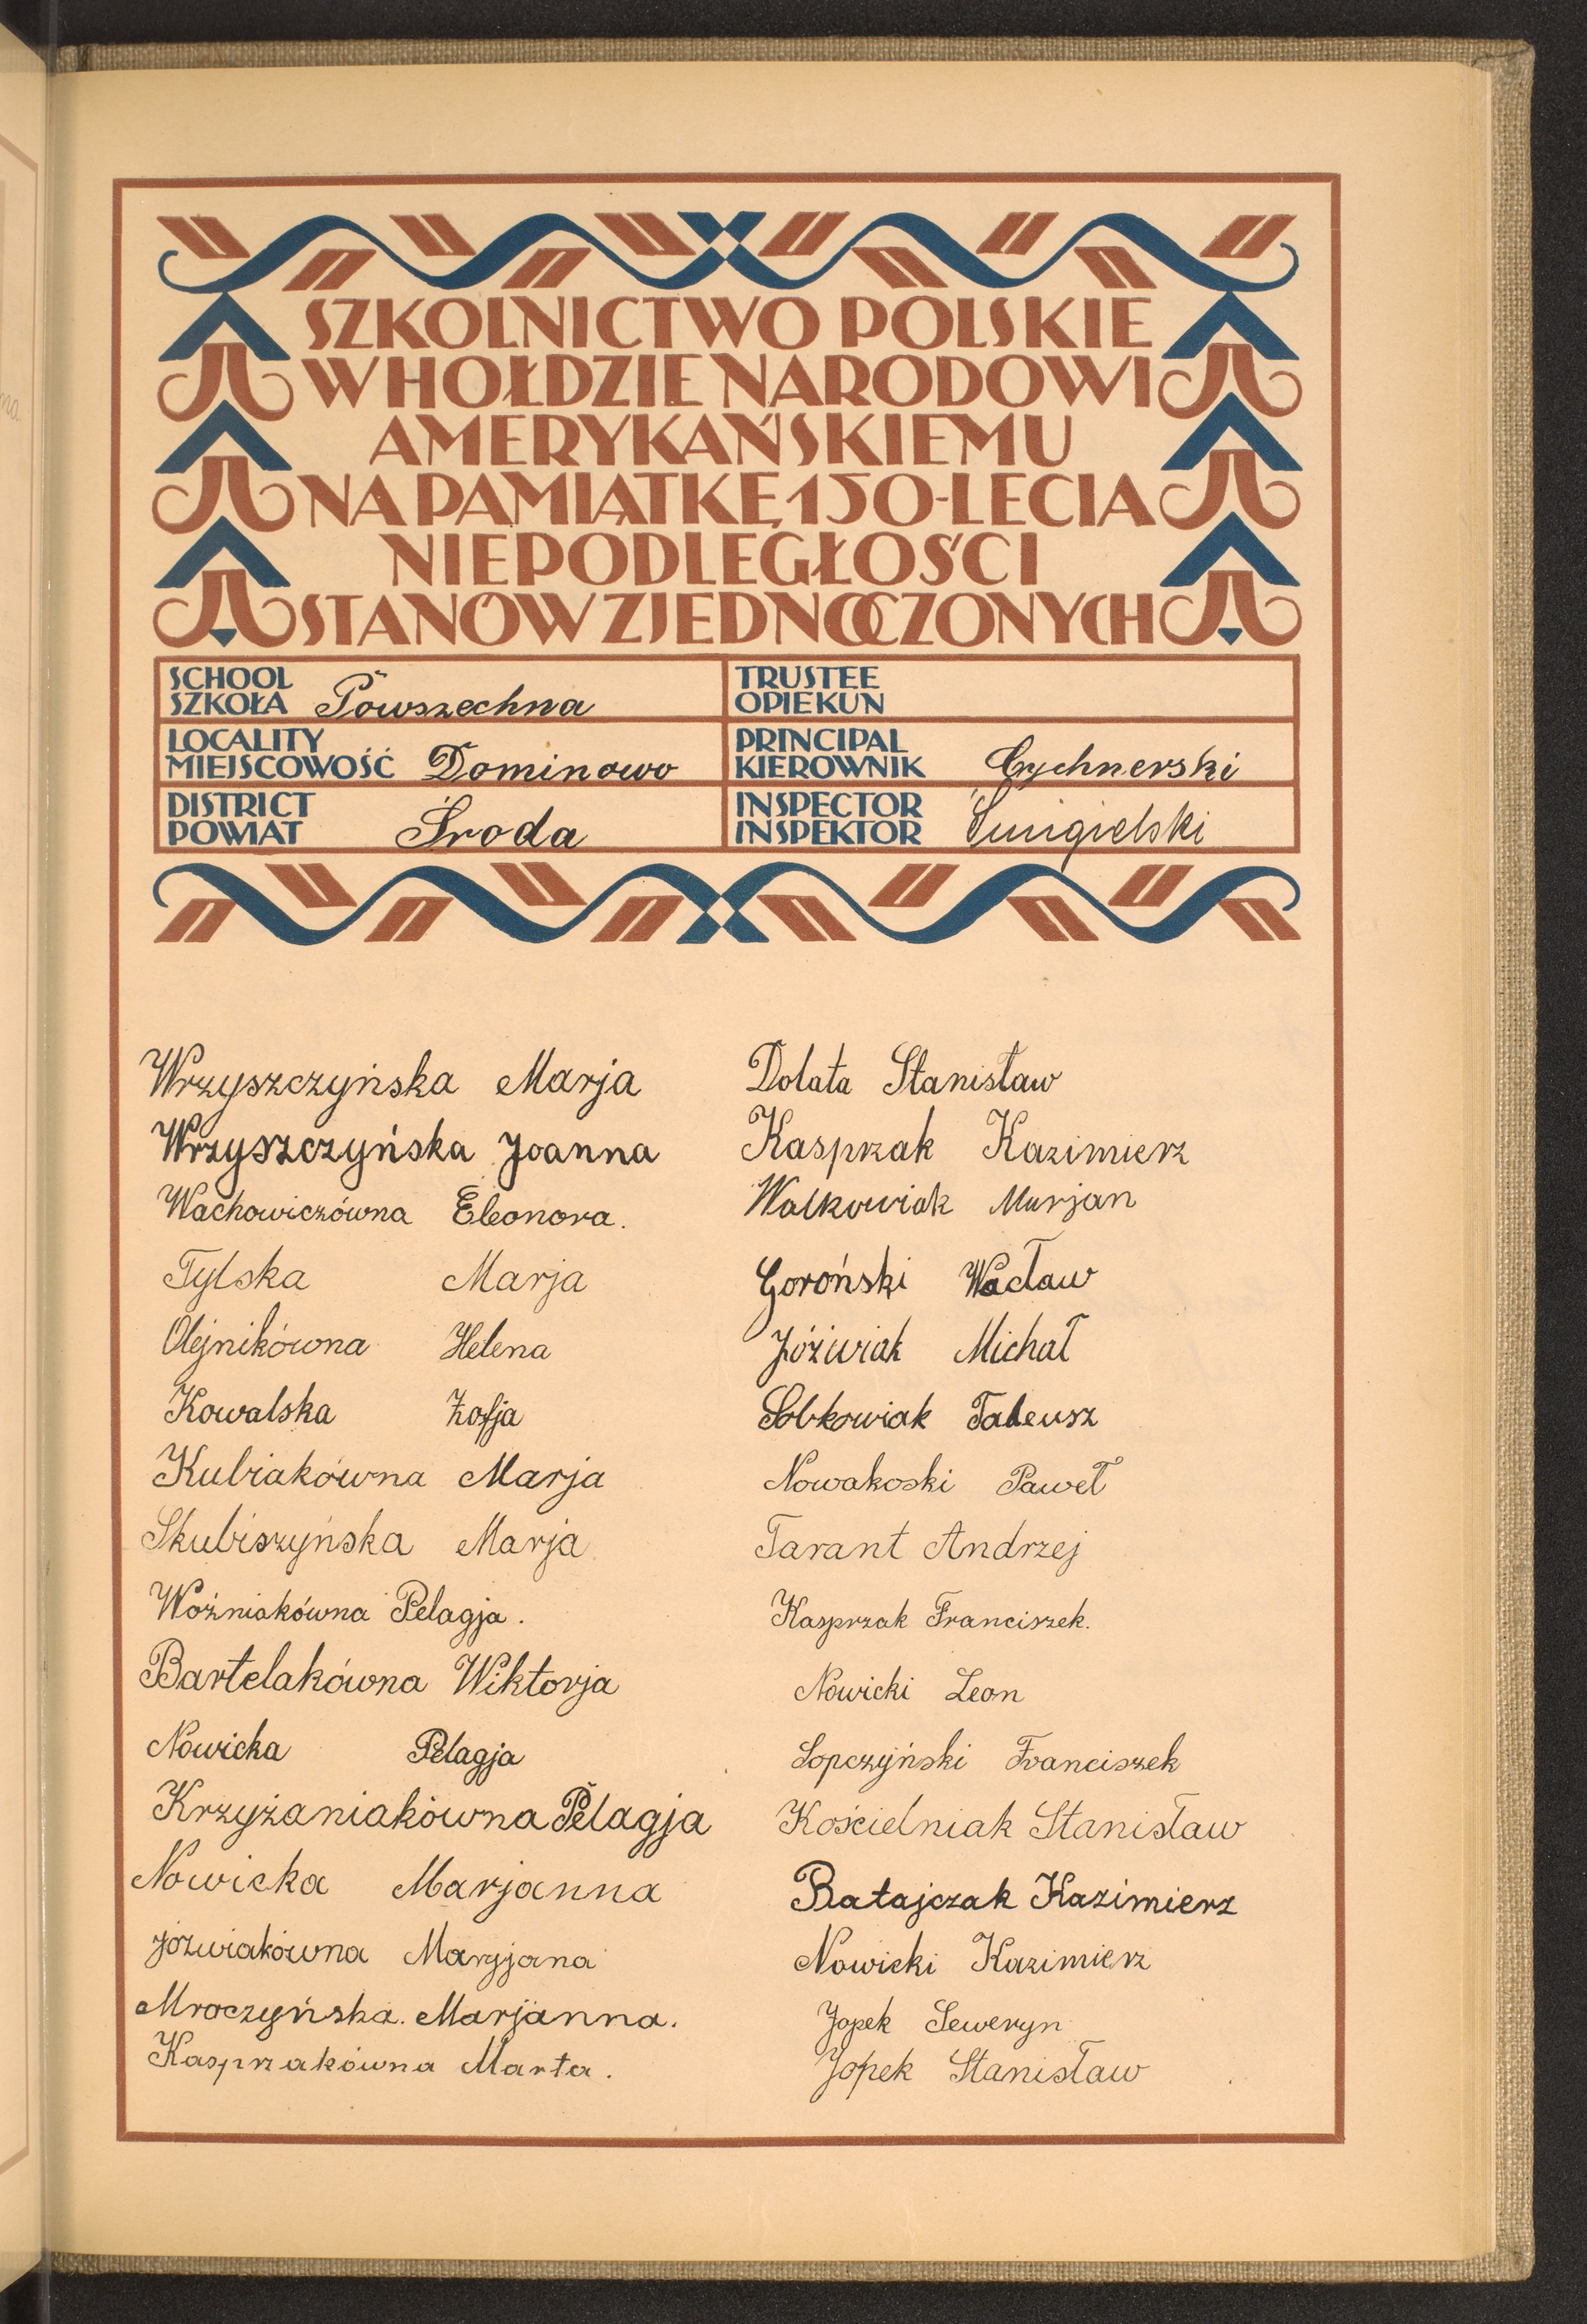 SZKOLNICTWO POLSKIE
W HOŁDZIE NARODOWI
AMERYKAŃSKIEMU
NA PAMIĄTKĘ 150-LECIA
NIEPODLEGŁOŚCI
STANÓW ZJEDNOCZONYCH
SCHOOL
SZKOŁA Powszechna
LOCALITY
MIEJSCOWOŚĆ Dominowo
DISTRICT
POWIAT Środa
TRUSTEE
OPIEKUN
PRINCIPAL
KIEROWNIK Cychnerski
INSPECTOR
INSPEKTOR Śmigielski
Wrzyszczyńska Marja
Wrzyszczyńska Joanna
Wachowiczówna Eleonora.
Tylska Marja
Olejnikówna Helena
Kowalska Zofja
Kubiakówna Marja
Skubiszyńska Marja
Woźniakówna Pelagja.
Bartelakówna Wiktorja
Nowicka Pelagja
Krzyżaniakówna Pelagja
Nowicka Marjanna
Jóźwiakówna Maryjana
Mroczyńska. Marjanna.
Kasprzakówna Marta.
Dolata Stanisław
Kasprzak Kazimierz
Walkowiak Marjan
Goroński Wacław
Jóźwiak Michał
Sobkowiak Tadeusz
Nowakoski Paweł
Tarant Andrzej
Kasprzak Franciszek.
Nowicki Leon
Łopczyński Franciszek
Kościelniak Stanisław
Ratajczak Kazimierz
Nowicki Kazimierz
Jopek Seweryn
Jopek Stanisław